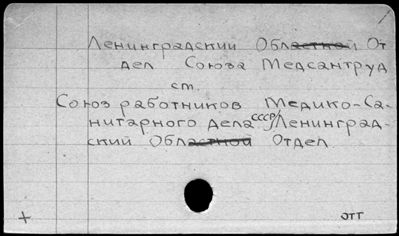 Ленинградский Областной От
дел Союза Медсантруд
ст.
Союз работников Медико-Са-
нитарного дела СССР/Ленинград-
ский Областной Отдел.
+ отт